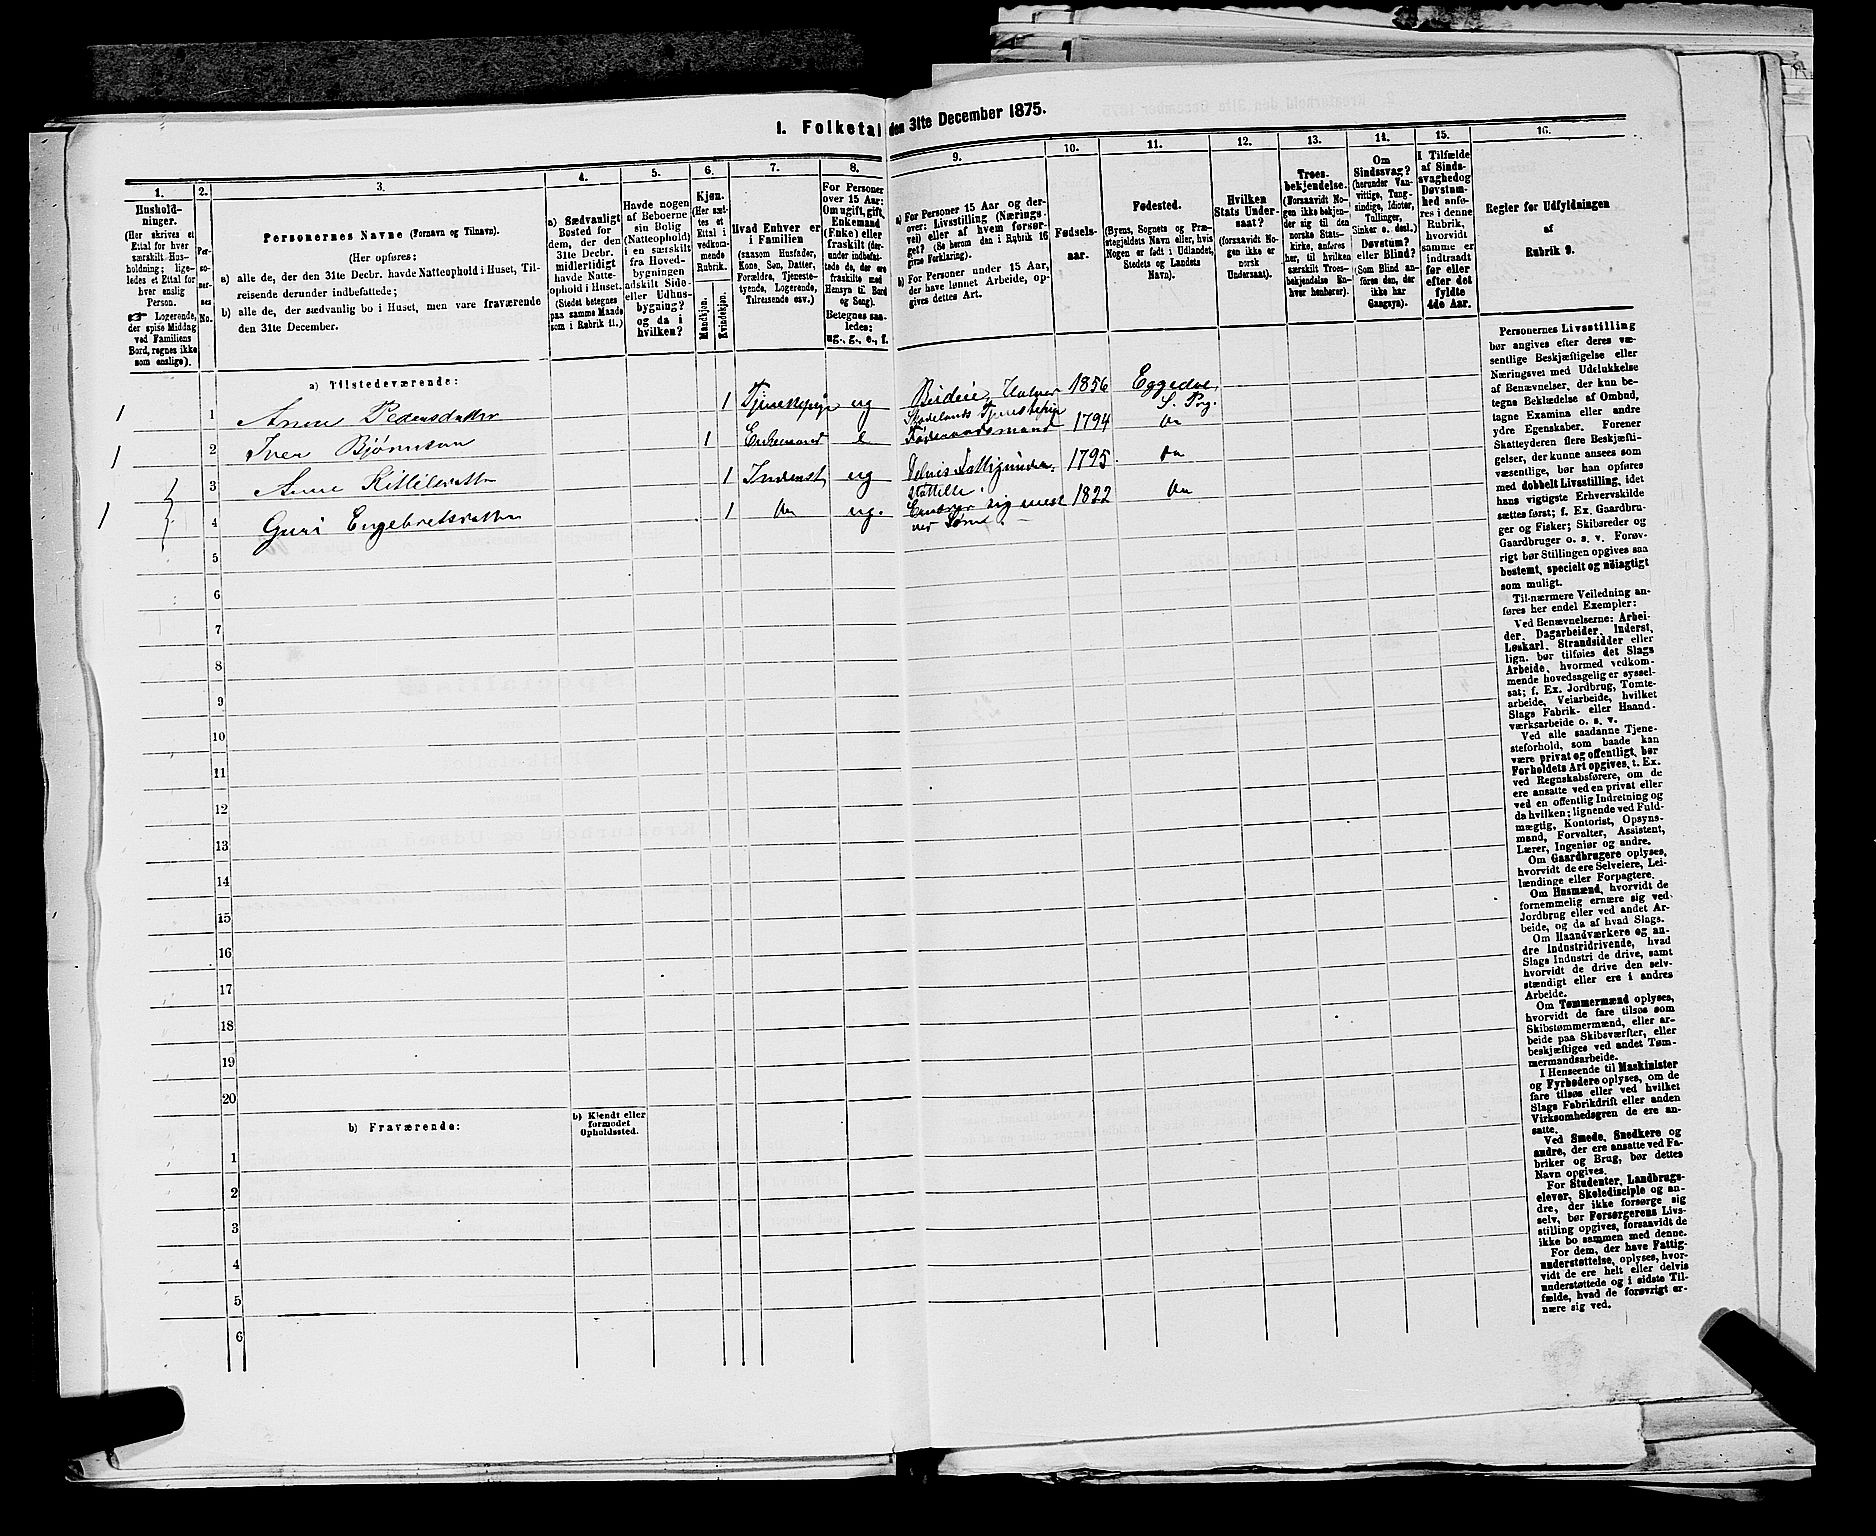 I. Folketal den 31te December 1875.
1.
Husholdninger.
(Her skrives et
Ettal for hver
særskilt Husholdning;
ligeledes et Ettal for
hver enslig
Person.
☞ Logerende,
der spise Middag
ved Familiens
Bord, regnes ikke
som enslige).
2.
Personernes
No.
3.
Personernes Navne (Fornavn og Tilnavn).
(Her opføres:
a) alle de, der den 31te Decbr. havde Natteophold i Huset, Tilreisende derunder indbefattede;
b) alle de, der sædvanlig bo i Huset, men vare fraværende
den 31te December.
4.
a) Sædvanligt
Bosted for
dem, der den
31te Decbr.
midlertidigt
havde Natteophold
i Huset.
(Stedet betegnes
paa samme Maade
som i Rubrik 11.)
5.
Havde nogen
af Beboerne
sin Bolig
(Natteophold)
i en særskilt
fra Hovedbygningen
adskilt Side-
eller Udhusbygning?
og da i
hvilken?
6.
Kjøn.
(Her sættes et
Ettal i
vedkommende
Rubrik.
Mandkjøn.
Kvindekjøn.
7.
Hvad Enhver er
i Familien
(saasom Husfader,
Kone, Søn, Datter,
Forældre, Tjenestetyende,
Logerende,
Tilreisende osv.)
8.
For Personer
over 15 Aar:
Om ugift, gift,
Enkemand
(Enke) eller
fraskilt (derunder
indbefattede de, der ere
fraskilte med
Hensyn til Bord
og Seng).
Betegnes saaledes:
ug., g., e., f.
9.
a) For Personer 15 Aar og derover: Livsstilling (Næringsvei) eller af hvem forsørget? (Se herom den i Rubrik 16 givne Forklaring).
b) For Personer under 15 Aar, der have lønnet Arbeide, opgives dettes Art.
10.
Fødselsaar.
11.
Fødested.
(Byens, Sognets og Præstegjeldets Navn eller, hvis
Nogen er født i Udlandet,
Stedets og Landets
Navn).
12.
Hvilken
Stats Undersaat?
(forsaavidt Nogen ikke er
norsk
Undersaat).
13.
Troesbekjendelse.
(Forsaavidt Nogen ikke bekjender sig til den
norske Statskirke, anføres
her, til hvilken
særskilt Troesbekjendelse Enhver henhører).
14.
Om
Sindssvag?
(herunder Vanvittige, Tungsindige, Idioter,
Tullinger,
Sinker o. desl.)
Døvstum?
eller Blind?
(Som Blind anføres den, der
ikke har
Gangsyn).
15.
I Tilfælde
af Sindssvaghed og
Døvstumhed anføres i denne
Rubrik,
hvorvidt
samme er
indtraadt
før eller
efter det
fyldte
4de Aar.
16.
Regler for Udfyldningen
af
Rubrik 9.
a) Tilstedeværende:
1 1 Anne Pedersdatter 1 Tjenestepige ug 1856 Eggedal S. Prg.
1 2 Iver Bjørnson 1 Enkemand e Føderaadsmand 1794 do
3 Anne Kittilsdatter 1 Inderst ug 1795 do
1 4 Guri Engebretsdatter 1 do ug. Ernærer sig mest 1822 do
5
6
7
8
9
10
11
12
13
14
15
16
17
18
19
20
b) Fraværende:
b) Kjendt eller
formodet
Opholdssted.
1
2
3
4
5
6
Personernes Livsstilling
bør angives efter deres væsentlige Beskjæftigelse eller
Næringsvei med Udelukkelse
af Benævnelser, der kun betegne Beklædelse af Ombud,
tagne Examina eller andre
ydre Egenskaber. Forener
Skatteyderen flere Beskjæftigelser, der kunne ansees som
væsentlige, bør han opføres
med dobbelt Livsstilling, idet
hans vigtigste Erhvervskilde
sættes først; f. Ex. Gaardbruger og Fisker; Skibsreder og
Gaardbruger o. s. v. Forøvrigt bør Stillingen opgives saa
bestemt, specielt og nøiagtigt
som muligt.
Til nærmere Veiledning anføres her endel Exempler:
Ved Benævnelserne: Arbeider, Dagarbeider, Inderst,
Løskarl, Strandsidder eller
lign. bør tilføies det Slags
Arbeide, hvormed vedkommende hovedsagelig er sysselsat; f. Ex. Jordbrug, Tomtearbeide, Veiarbeide, hvilket
Slags Fabrik- eller Haandværksarbeide o. s. v.
Ved alle saadanne Tjenesteforhold, som baade kan
være privat og offentligt, bør
Forholdets Art opgives, t. Ex.
ved Regnskabsførere, om de
ere ansatte ved en privat eller
ved en offentlig Indretning og
da hvilken; lignende ved Fuldmægtig, Kontorist, Opsynsmand, Forvalter, Assistent,
Lærer, Ingeniør og andre.
Om Gaardbrugere oplyses,
hvorvidt de ere Selveiere, Leilændinge eller Forpagtere.
Om Husmænd, hvorvidt de
fornemmelig ernære sig ved
Jordbrug eller ved andet Arbeide, og da af hvad Slags.
Om Haandværkere og andre Industridrivende, hvad
Slags Industri de drive, samt
hvorvidt de drive den selvstændigt eller ere i andres
Arbeide.
Om Tømmermænd oplyses,
hvorvidt de fare tilsøs som
Skibstømmermænd, eller arbeide paa Skibsværfter, eller
beskjæftiges ved andet Tømmermandsarbeide.
I Henseende til Maskinister
og Fyrbødere oplyses, om de
fare tilsøs eller ved hvilket
Slags Fabrikdrift eller anden
Virksomhedsgren de ere ansatte.
Ved Smede, Snedkere og
andre, der ere ansatte ved Fabriker og Brug, bør dettes
Navn opgives.
For Studenter, Landbrugselever, Skoledisciple og andre, der ikke forsørge sig
selv, bør Forsørgerens Livsstilling opgives, forsaavidt de
ikke bo sammen med denne.
For dem, der have Fattigunderstøttelse, oplyses, hvorvidt de ere helt eller delvis
understøttede og i sidste Tilfælde, hvad de forøvrigt ernære sig ved.